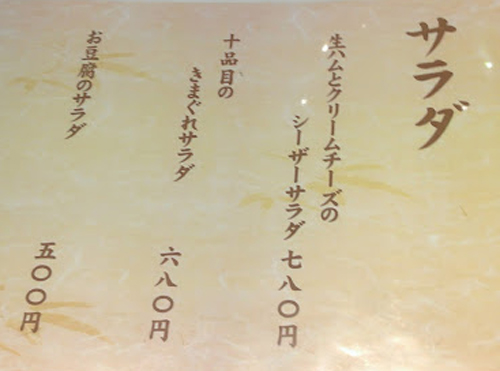 サラダ
生ハムとクリームチーズの
シーザーサラダ 七八〇円
十品目の
きまぐれサラダ 六八〇円
お豆腐のサラダ 五〇〇円